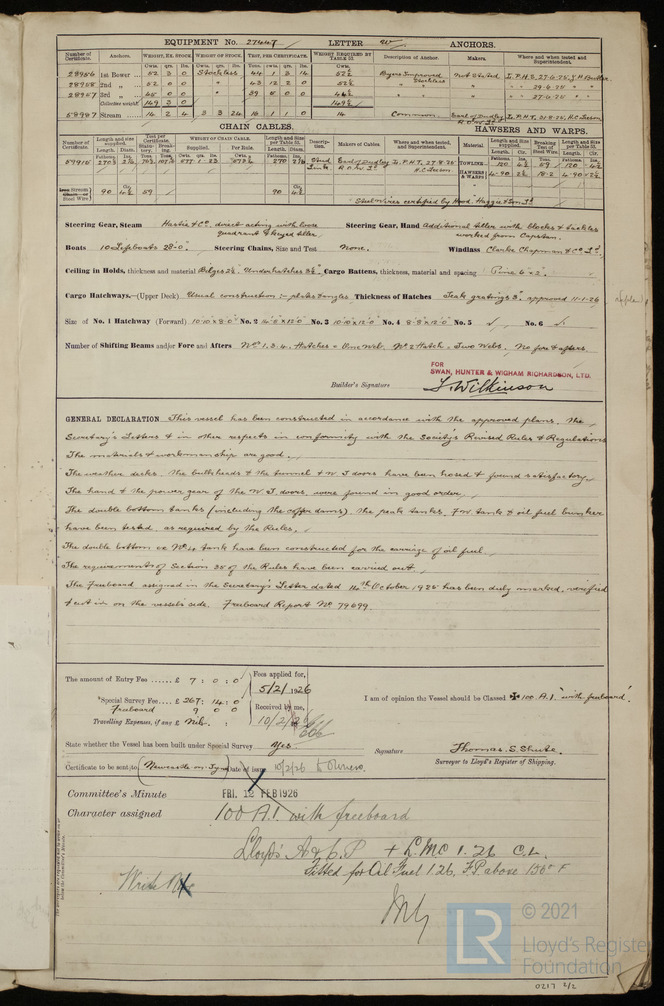 EQUIPMENT No. 27447 LETTER W ANCHORS.
Number of Certificate. Anchors. WEIGHT, EX. STOCK WEIGHT OF STOCK. TEST, PER CERTIFICATE. WEIGHT REQUIRED BY TABLE 53. Description of Anchor. Makers. Where and when tested and Superintendent.
Cwts. qrs. lbs. Cwts. qrs. lbs. Tons. cwts. qrs. lbs. Cwts.
28956 1st Bower 52 3 0 Stockless 44 1 3 14 52½ Byers Improved Stockless Not Stated
28958 2nd „ 52 0 0 " 43 12 2 0 52½
28957 3rd „ 45 0 0 " 39 5 0 0 44½
Collective weight 149 3 0 149½
58987 Stream 14 2 4 3 3 24 16 1 1 0 14 Common
CHAIN CABLES. HAWSERS AND WARPS.
Number of Certificate. Length and size supplied. Test per Certificate. WEIGHT OF CHAIN CABLE. Length and Size per Table 53. Description. Makers of Cables. Where and when tested, and Superintendent. Material. Length and Size supplied. Breaking Test of Steel Wire. Length and Size per Table 53.
Length. Diam. Supplied. Per Rule. Length. Diam. Length. Cir. Length. Cir.
TOWLINE
HAWSERS & WARPS
Stream Chain or Steel Wire 90 4½ 59 90 4½
Steel wires certified by Hood, Haggie & Son Ltd
Steering Gear, Steam Hastie & Co. direct acting with loose quadrant & keyed tiller. Steering Gear, Hand Additional tiller with blocks & tackles worked from Capstan.
Boats 10 Lifeboats 28'-0" Steering Chains, Size and Test None. Windlass Clarke Chapman & Co. Ld.
Ceiling in Holds, thickness and material Bilges 2½. Underhatches 3½" Cargo Battens, thickness, material and spacing Pine 6 x 2.
Cargo Hatchways.—(Upper Deck) Usual construction :- plates & angles Thickness of Hatches Teak gratings 3". approved 11-1-26
Size of No. 1 Hatchway (Forward) 10'10" x 8'0" No. 2 14'8" x 12'0" No. 3 10'10" x 12'0" No. 4 8'8" x 12'0" No. 5 ✓ No. 6 ✓
Number of Shifting Beams and/or Fore and Afters Nos 1. 3. 4. Hatches = One Web. No 2 Hatch, Two Webs, No fore & afters
FOR
SWAN, HUNTER & WIGHAM RICHARDSON, LTD.
Builder's Signature J. Wilkinson
GENERAL DECLARATION This vessel has been constructed in accordance with the approved plans, the
Secretary's Letters & in other respects in conformity with the Society's Revised Rules & Regulations
The materials & workmanship are good.
The weather decks, the bulkheads & the tunnel & W T doors have been hosed & found satisfactory.
The hand & the power gear of the W.T. doors, were found in good order.
The double bottom tanks (including the cofferdams) the peak tanks, F.W. tanks & oil fuel bunker
have been tested as required by the Rules.
The double bottom No 4 tank have been constructed for the carriage of oil fuel
The requirements of Section 35 of the Rules have been carried out.
The Freeboard assigned in the Secretary's Letter dated 14th October 1925 has been duly marked, verified
& cut in on the vessel's side. Freeboard Report No 79699
The amount of Entry Fee ...... £ 7 : 0 : 0 Fees applied for, 5/2/1926
Special Survey Fee.... £ 267 : 14 : 0 I am of opinion the Vessel should be Classed ✠ 100. A.1. "with freeboard".
Freeboard 9 0 0 Received by me,
Travelling Expenses, if any £ Nil. : : 10/2/26
State whether the Vessel has been built under Special Survey Yes. Signature Thomas. S. Shute.
Surveyor to Lloyd's Register of Shipping.
Certificate to be sent to (Newcastle on Tyne) Date of issue 10/2/26 to Owners.
Committee's Minute FRI. 12 FEB 1926
Character assigned 100 A.1. with freeboard
Lloyd's A & C.P. + LMC 1.26 C.L.
Fitted for Oil Fuel 1.26. F.P. above 150° F
Write
LR
© 2021
Lloyd's Register
Foundation
0217 2/2